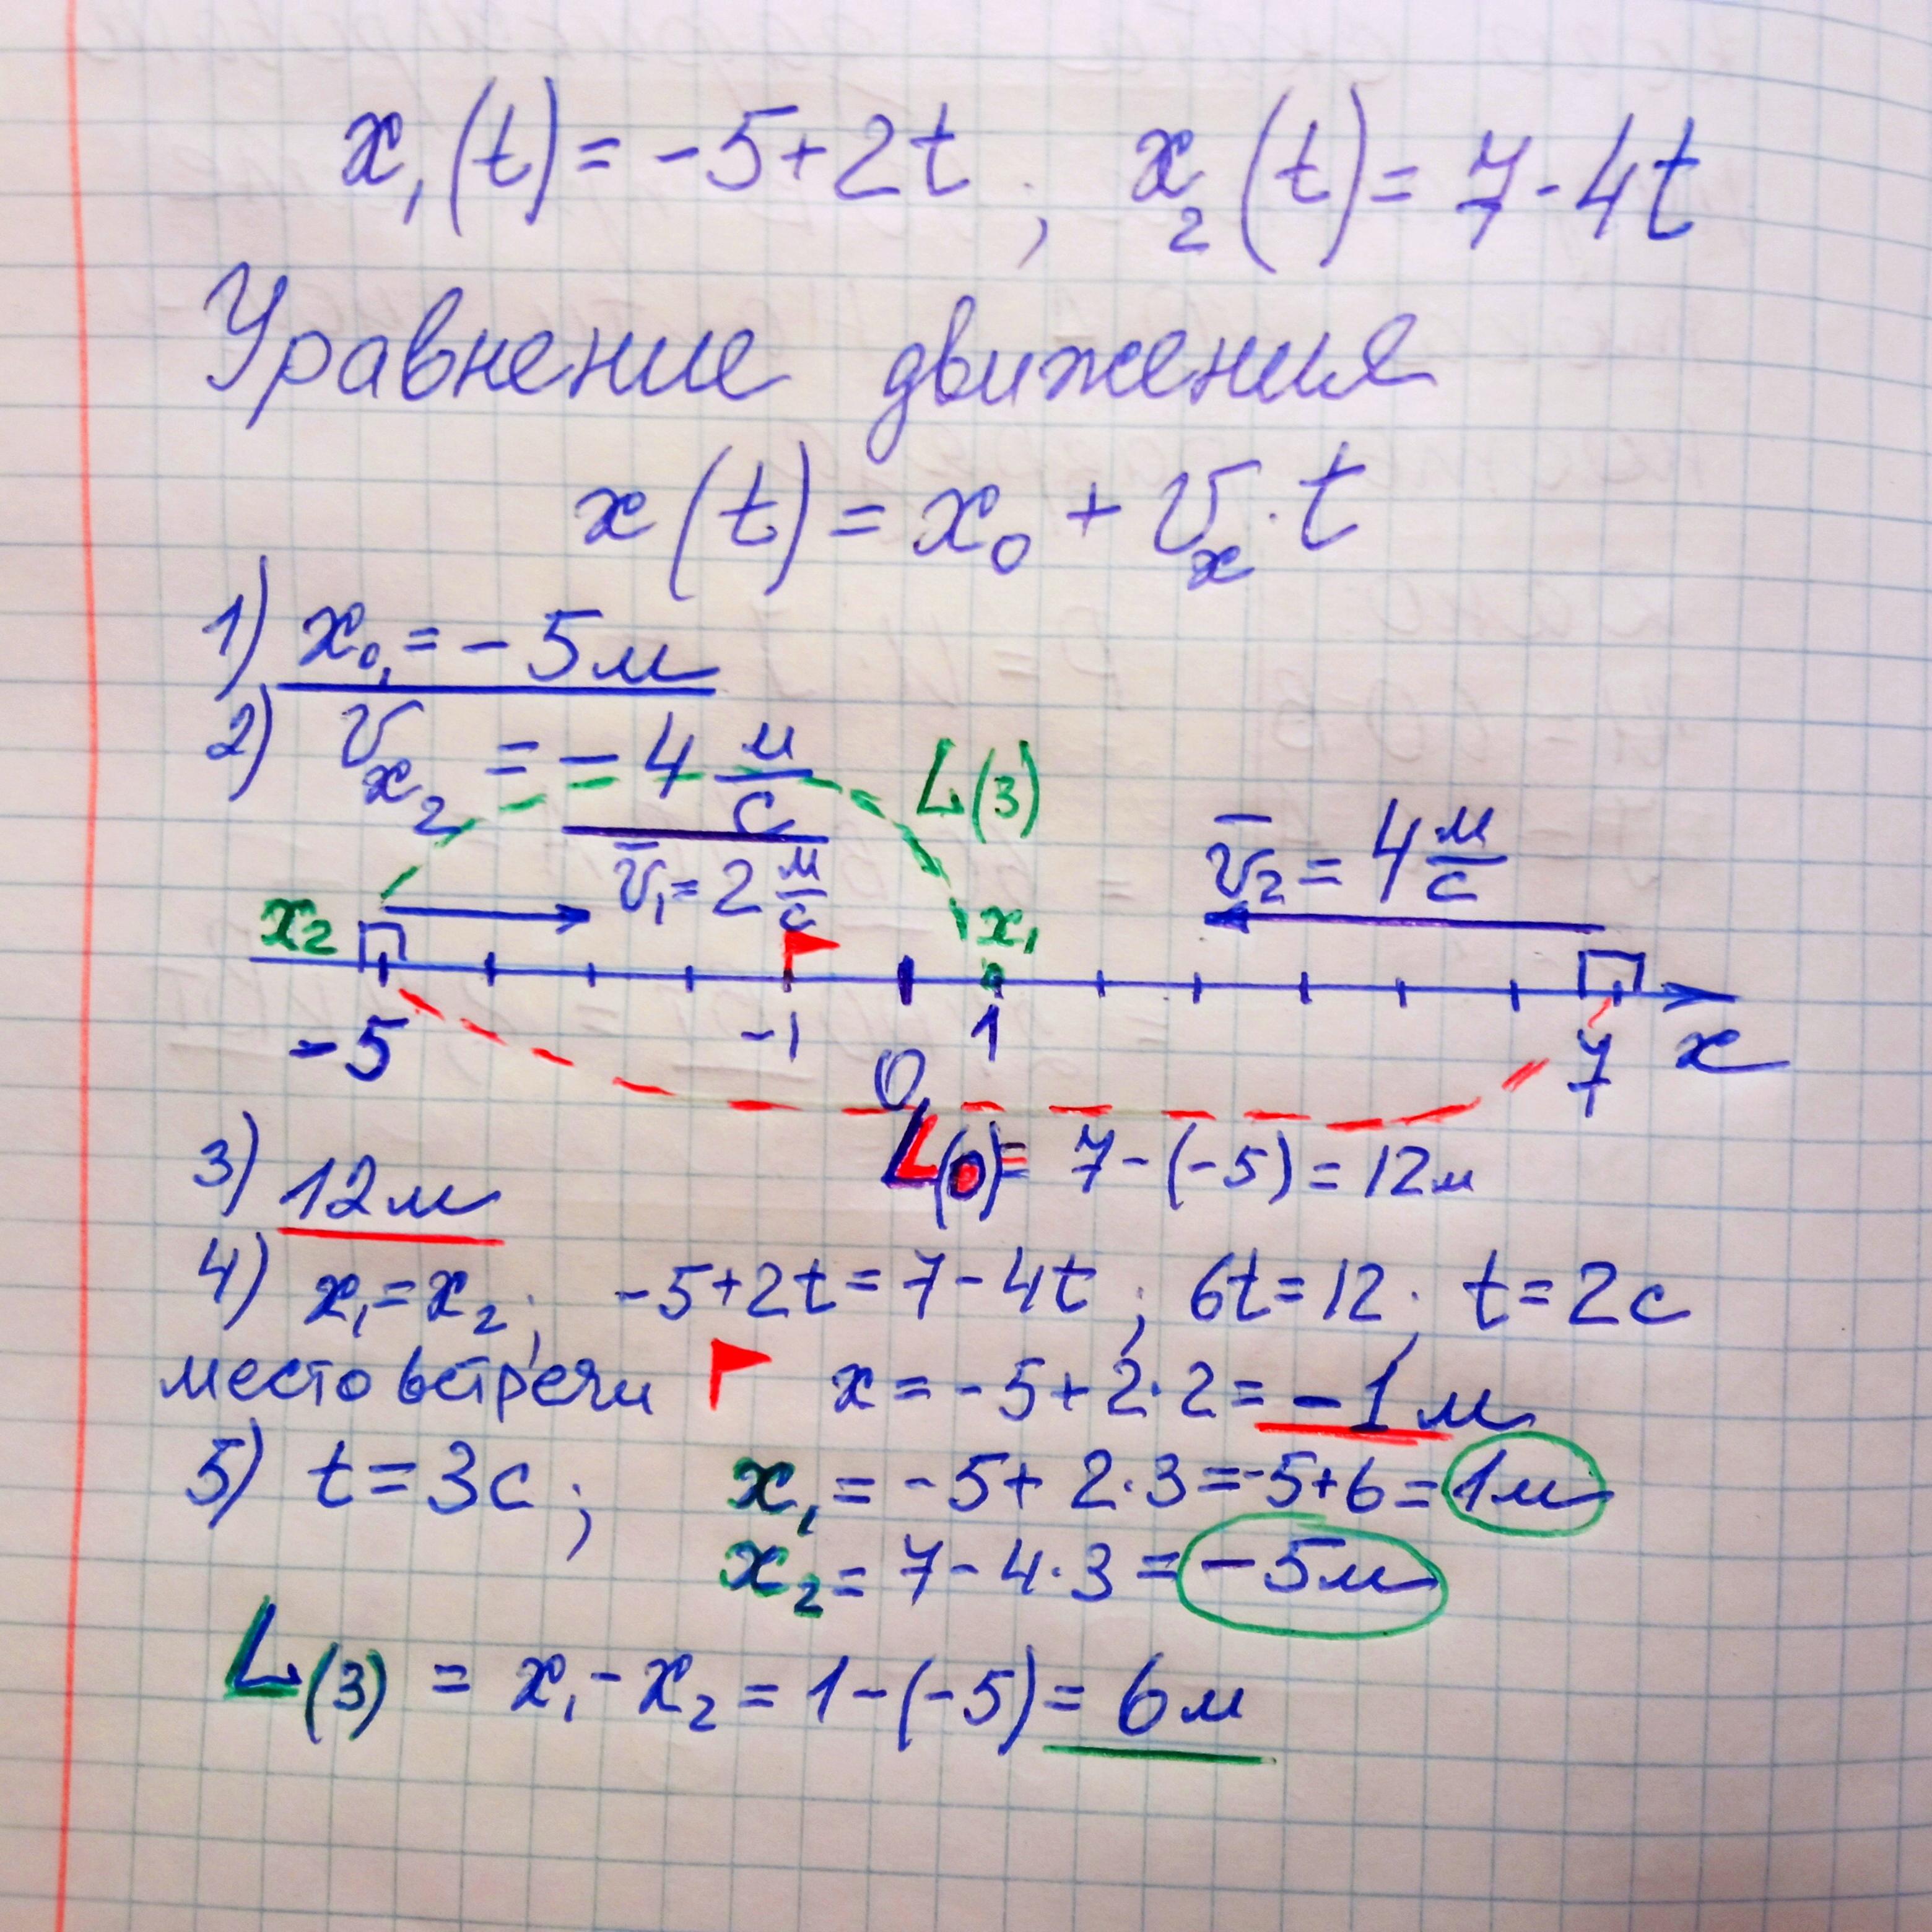 x₁(t) = -5+2t ; x₂(t) = 7-4t
Уравнение движения
x(t) = x₀ + vₓ·t
1) x₀₁ = -5м
2) vₓ₂ = -4 м/с
L(3)
v̄₁ = 2 м/с
v̄₂ = 4 м/с
x₂ x₁
-5 -1 0 1 7 x
L(0) = 7-(-5) = 12м
3) 12м
4) x₁=x₂; -5+2t = 7-4t ; 6t=12; t=2с
место встречи x = -5+2·2 = -1м
5) t=3с; x₁ = -5+2·3=-5+6=1м
x₂ = 7-4·3 = -5м
L(3) = x₁-x₂ = 1-(-5) = 6м